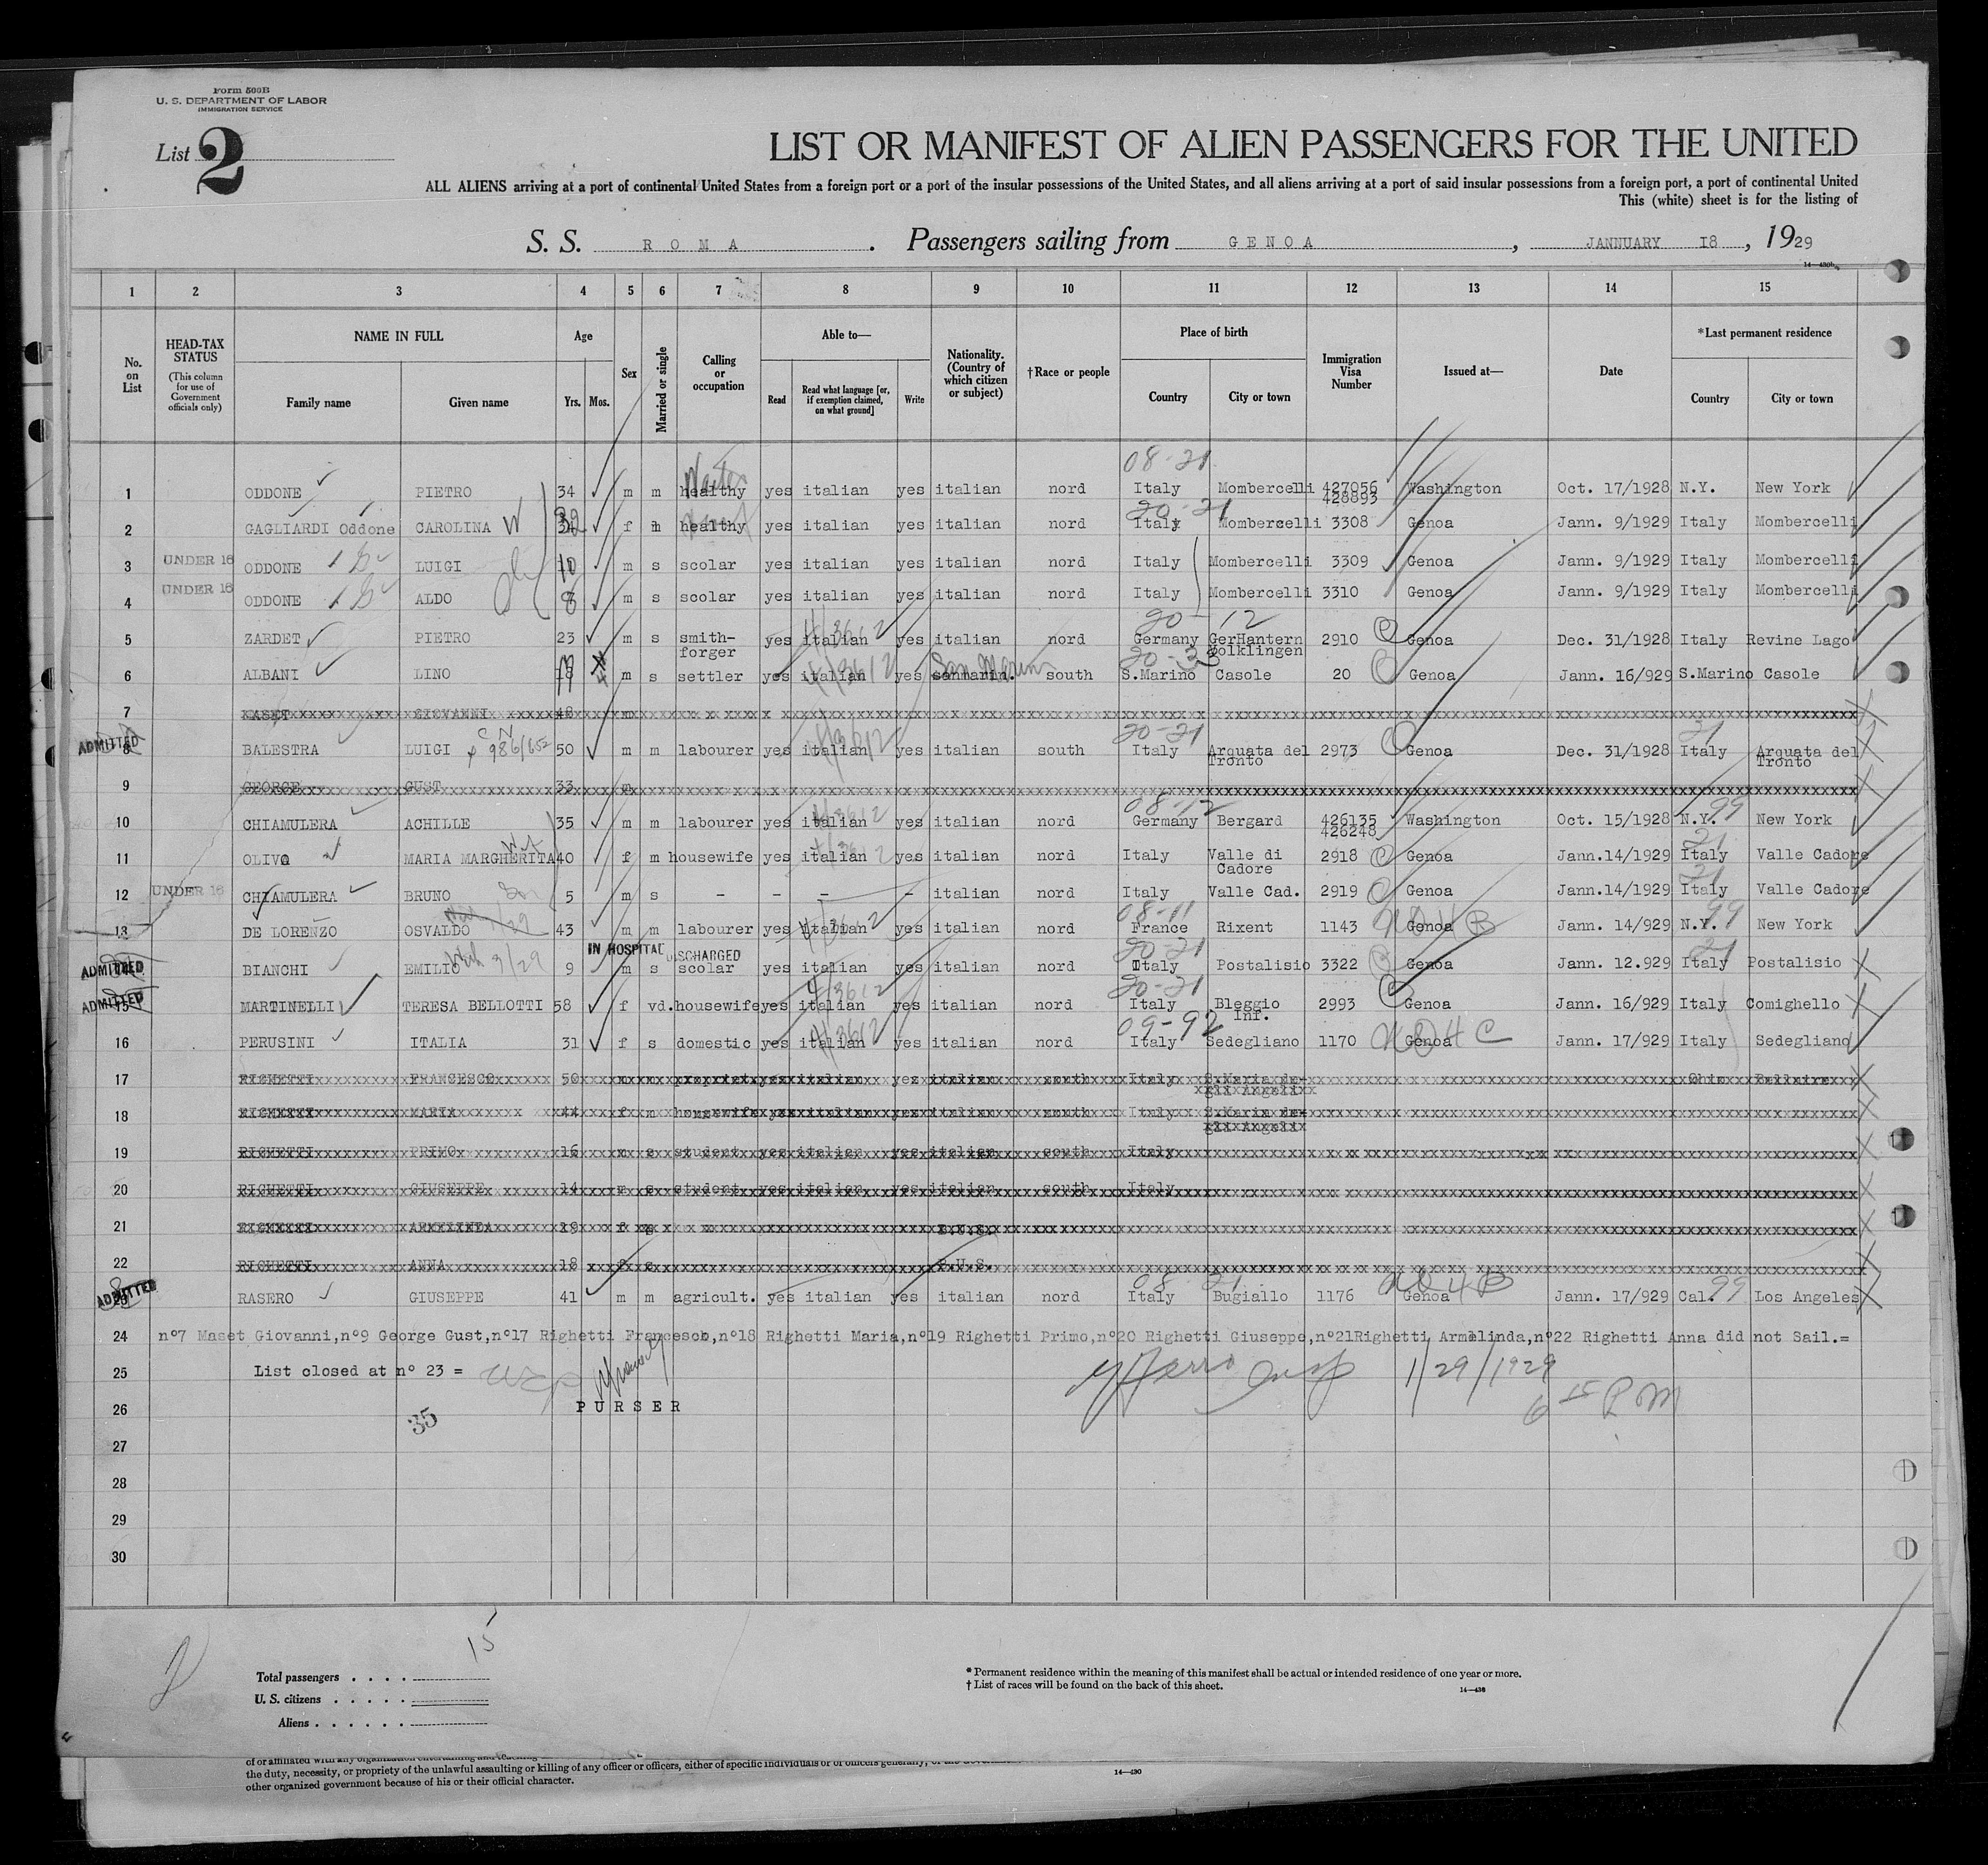 Form 500B
U. S. DEPARTMENT OF LABOR
IMMIGRATION SERVICE
List 2
LIST OR MANIFEST OF ALIEN PASSENGERS FOR THE UNITED
ALL ALIENS arriving at a port of continental United States from a foreign port or a port of the insular possessions of the United States, and all aliens arriving at a port of said insular possessions from a foreign port, a port of continental United
This (white) sheet is for the listing of
S. S. ROMA. Passengers sailing from GENOA, JANNUARY 18, 1929
14—430b
1 2 3 4 5 6 7 8 9 10 11 12 13 14 15
No. on List
HEAD-TAX STATUS (This column for use of Government officials only)
NAME IN FULL Family name Given name
Age Yrs. Mos.
Sex
Married or single
Calling or occupation
Able to— Read Read what language [or, if exemption claimed, on what ground] Write
Nationality. (Country of which citizen or subject)
†Race or people
Place of birth Country City or town
Immigration Visa Number
Issued at—
Date
*Last permanent residence Country City or town
08-21
1 ODDONE PIETRO 34 m m healthy Waiter yes italian yes italian nord Italy Mombercelli 427056 428893 Washington Oct. 17/1928 N.Y. New York
20-21
2 GAGLIARDI Oddone CAROLINA W 32 f m healthy yes italian yes italian nord Italy Mombercelli 3308 Genoa Jann. 9/1929 Italy Mombercelli
3 UNDER 16 ODDONE LUIGI 10 m s scolar yes italian yes italian nord Italy Mombercelli 3309 Genoa Jann. 9/1929 Italy Mombercelli
4 UNDER 16 ODDONE ALDO 8 m s scolar yes italian yes italian nord Italy Mombercelli 3310 Genoa Jann. 9/1929 Italy Mombercelli
20-12
5 ZARDET PIETRO 23 m s smith-forger yes italian yes italian nord Germany GerHantern Wolklingen 2910 Genoa Dec. 31/1928 Italy Revine Lago
20-35
6 ALBANI LINO 18 m s settler yes italian yes sanmarin. San Marino south S.Marino Casole 20 Genoa Jann. 16/929 S.Marino Casole
7 MASET GIOVANNI 48 m
20-21
ADMITTED 8 BALESTRA LUIGI 986/652 50 m m labourer yes italian yes italian south Italy Arquata del Tronto 2973 Genoa Dec. 31/1928 Italy Arquata del Tronto
9 GEORGE GUST 33 m
08-12 99
10 CHIAMULERA ACHILLE 35 m m labourer yes italian yes italian nord Germany Bergard 426135 426248 Washington Oct. 15/1928 N.Y. New York
11 OLIVO MARIA MARGHERITA 40 f m housewife yes italian yes italian nord Italy Valle di Cadore 2918 Genoa Jann.14/1929 Italy Valle Cadore
12 UNDER 16 CHIAMULERA BRUNO 5 m s - - - - italian nord Italy Valle Cad. 2919 Genoa Jann.14/1929 Italy Valle Cadore
08-11 99
13 DE LORENZO OSVALDO 43 m m labourer yes italian yes italian nord France Rixent 1143 Genoa Jann. 14/929 N.Y. New York
IN HOSPITAL DISCHARGED 20-21
ADMITTED 14 BIANCHI EMILIO 9 m s scolar yes italian yes italian nord Italy Postalisio 3322 Genoa Jann. 12.929 Italy Postalisio
20-21
ADMITTED 15 MARTINELLI TERESA BELLOTTI 58 f vd. housewife yes italian yes italian nord Italy Bleggio Inf. 2993 Genoa Jann. 16/929 Italy Comighello
09-92
16 PERUSINI ITALIA 31 f s domestic yes italian yes italian nord Italy Sedegliano 1170 Genoa Jann. 17/929 Italy Sedegliano
17 RIGHETTI FRANCESCO 50 m m propriet. yes italian yes italian south Italy S.Maria de-gli Angeli Ohio Bellaire
18 RIGHETTI MARIA 44 f m housewife yes italian yes italian south Italy S.Maria de-gli Angeli
19 RIGHETTI PRIMO 16 m s student yes italian yes italian south Italy
20 RIGHETTI GIUSEPPE 14 m s student yes italian yes italian south Italy
21 RIGHETTI ARMELINDA 19 f s B.U.S.
22 RIGHETTI ANNA 18 f s B.U.S.
08 21 99
ADMITTED 23 RASERO GIUSEPPE 41 m m agricult. yes italian yes italian nord Italy Bugiallo 1176 Genoa Jann. 17/929 Cal. Los Angeles
24 n°7 Maset Giovanni,n°9 George Gust,n°17 Righetti Francesco,n°18 Righetti Maria,n°19 Righetti Primo,n°20 Righetti Giuseppe,n°21Righetti Armelinda,n°22 Righetti Anna did not Sail.=
25 List closed at n° 23 = 1/29/1929
26 PURSER 6 15 PM
35
27
28
29
30
15
2
Total passengers
U. S. citizens
Aliens
* Permanent residence within the meaning of this manifest shall be actual or intended residence of one year or more.
† List of races will be found on the back of this sheet.
14—430
the duty, necessity, or propriety of the unlawful assaulting or killing of any officer or officers, either of specific individuals or of officers generally, of the
other organized government because of his or their official character.
14—430